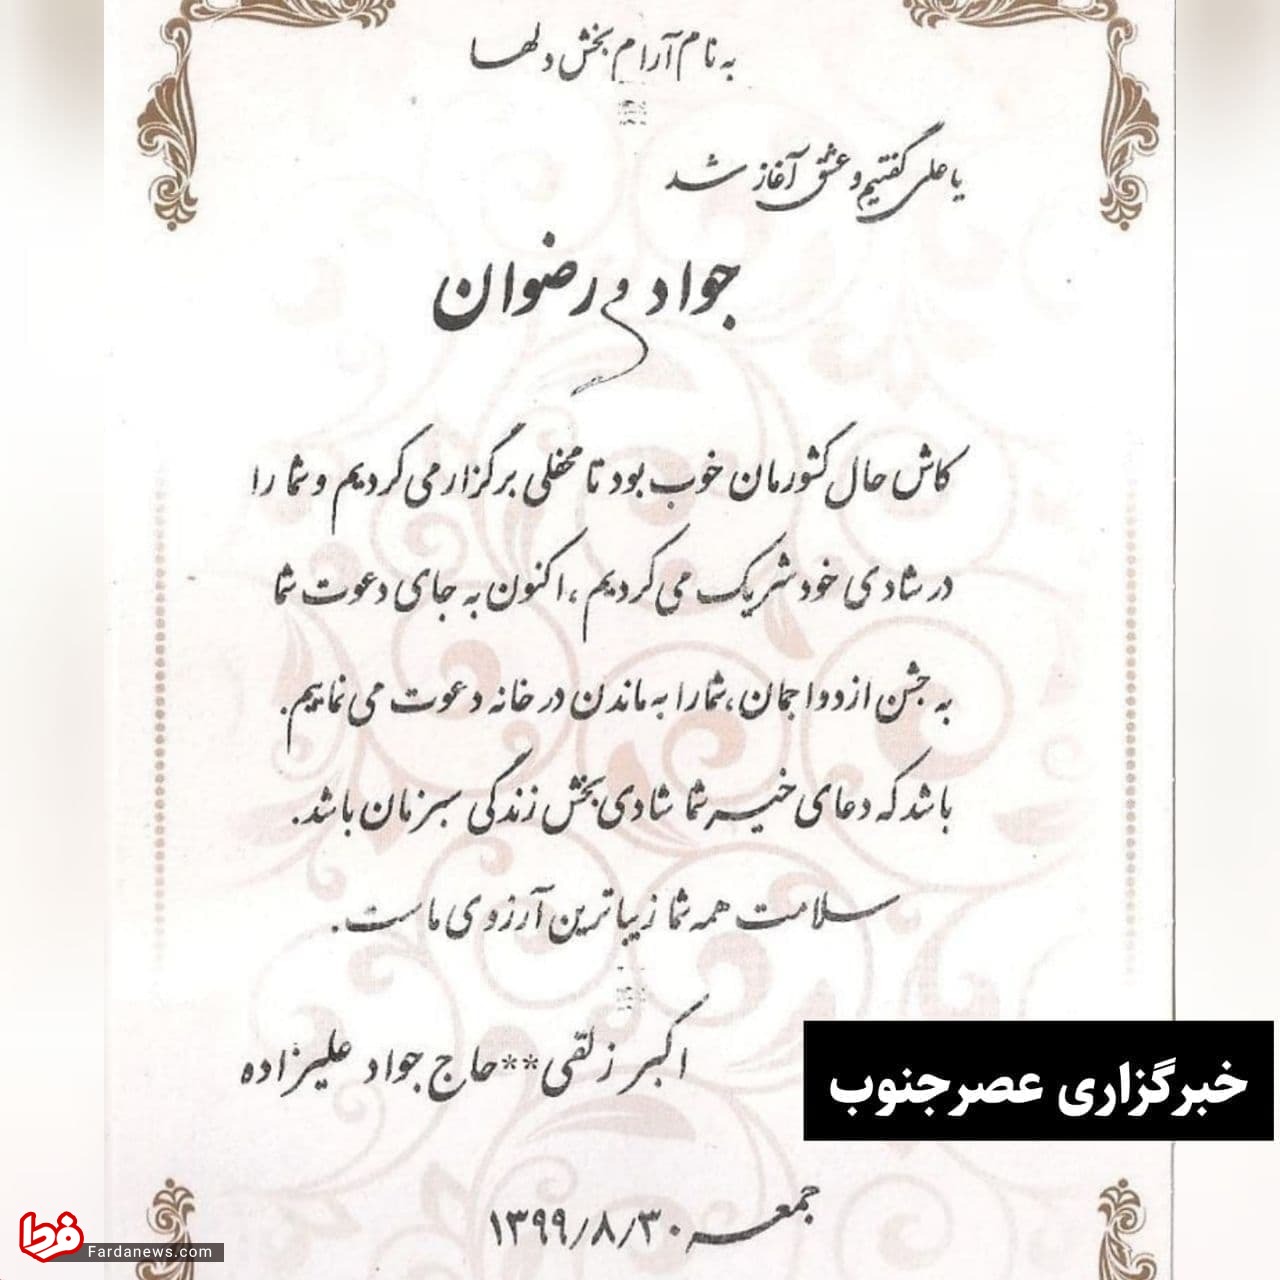 به نام آرام بخش دلها
یا علی گفتیم و عشق آغاز شد
جواد و رضوان
کاش حال کشورمان خوب بود تا محفلی برگزار می کردیم و شما را
در شادی خود شریک می کردیم ، اکنون به جای دعوت شما
به جشن ازدواجمان ، شما را به ماندن در خانه دعوت می نماییم.
باشد که دعای خیر شما شادی بخش زندگی سبزمان باشد.
سلامت همه شما زیباترین آرزوی ماست.
اکبر زلقی**حاج جواد علیزاده
خبرگزاری عصرجنوب
جمعه ۱۳۹۹/۸/۳۰
فردا
Fardanews.com